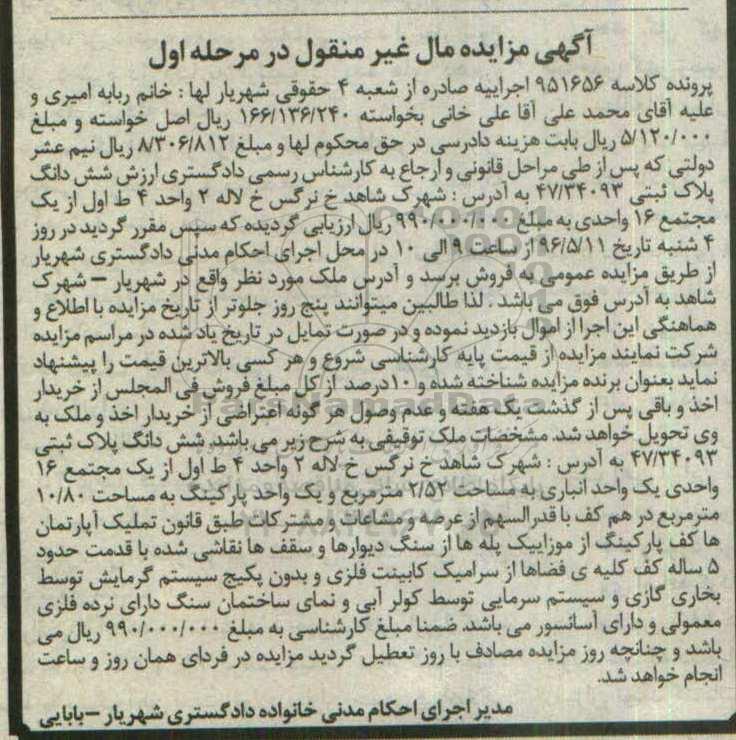 آگهی مزایده مال غیر منقول در مرحله اول
پرونده کلاسه ۹۵۱۶۵۶ اجراییه صادره از شعبه ۴ حقوقی شهریار لها : خانم ربابه امیری و
علیه آقای محمد علی آقا علی خانی بخواسته ۱۶۶/۱۳۶/۲۴۰ ریال اصل خواسته و مبلغ
۵/۱۲۰/۰۰۰ ریال بابت هزینه دادرسی در حق محکوم لها و مبلغ ۸/۳۰۶/۸۱۲ ریال نیم عشر
دولتی که پس از طی مراحل قانونی و ارجاع به کارشناس رسمی دادگستری ارزش شش دانگ
پلاک ثبتی ۴۷/۳۴۰۹۳ به آدرس : شهرک شاهد خ نرگس خ لاله ۲ واحد ۴ ط اول از یک
مجتمع ۱۶ واحدی به مبلغ ۹۹۰/۰۰۰/۰۰۰ ریال ارزیابی گردیده که سپس مقرر گردید در روز
۴ شنبه تاریخ ۹۶/۵/۱۱ از ساعت ۹ الی ۱۰ در محل اجرای احکام مدنی دادگستری شهریار
از طریق مزایده عمومی به فروش برسد و آدرس ملک مورد نظر واقع در شهریار – شهرک
شاهد به آدرس فوق می باشد . لذا طالبین میتوانند پنج روز جلوتر از تاریخ مزایده با اطلاع و
هماهنگی این اجرا از اموال بازدید نموده و در صورت تمایل در تاریخ یاد شده در مراسم مزایده
شرکت نمایند مزایده از قیمت پایه کارشناسی شروع و هر کسی بالاترین قیمت را پیشنهاد
نماید بعنوان برنده مزایده شناخته شده و ۱۰درصد از کل مبلغ فروش فی المجلس از خریدار
اخذ و باقی پس از گذشت یک هفته و عدم وصول هر گونه اعتراضی از خریدار اخذ و ملک به
وی تحویل خواهد شد. مشخصات ملک توقیفی به شرح زیر می باشد. شش دانگ پلاک ثبتی
۴۷/۳۴۰۹۳ به آدرس : شهرک شاهد خ نرگس خ لاله ۲ واحد ۴ ط اول از یک مجتمع ۱۶
واحدی یک واحد انباری به مساحت ۲/۵۲ مترمربع و یک واحد پارکینگ به مساحت ۱۰/۸۰
مترمربع در هم کف با قدرالسهم از عرصه و مشاعات و مشترکات طبق قانون تملیک آپارتمان
ها کف پارکینگ از موزاییک پله ها از سنگ دیوارها و سقف ها نقاشی شده با قدمت حدود
۵ ساله کف کلیه ی فضاها از سرامیک کابینت فلزی و بدون پکیج سیستم گرمایش توسط
بخاری گازی و سیستم سرمایی توسط کولر آبی و نمای ساختمان سنگ دارای نرده فلزی
معمولی و دارای آسانسور می باشد. ضمنا مبلغ کارشناسی به مبلغ ۹۹۰/۰۰۰/۰۰۰ ریال می
باشد و چنانچه روز مزایده مصادف با روز تعطیل گردید مزایده در فردای همان روز و ساعت
انجام خواهد شد.
مدیر اجرای احکام مدنی خانواده دادگستری شهریار –بابایی